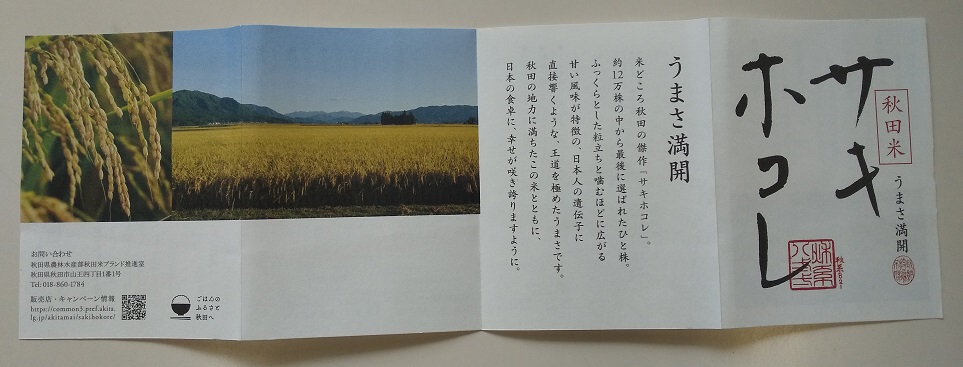 サキ
ホコレ
秋田米
うまさ満開
うまさ満開
米どころ秋田の傑作「サキホコレ」。
約12万株の中から最後に選ばれたひと株。
ふっくらとした粒立ちと噛むほどに広がる
甘い風味が特徴の、日本人の遺伝子に
直接響くような、王道を極めたうまさです。
秋田の地力に満ちたこの米とともに、
日本の食卓に、幸せが咲き誇りますように。
お問い合わせ
秋田県農林水産部秋田米ブランド推進室
秋田県秋田市山王四丁目1番1号
Tel: 018-860-1784
販売店・キャンペーン情報
https://common3.pref.akita.
lg.jp/akitamai/sakihokore/
ごはんの
ふるさと
秋田へ